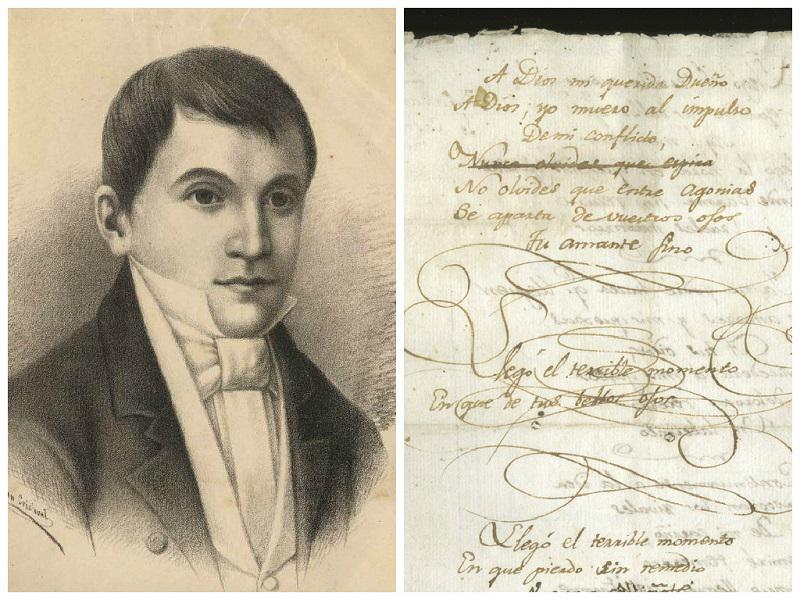 A Dios mi querido Dueño
A Dios, yo muero al impulso
De mi conflicto,
Nunca olvides que espira
No olvides que entre agonias
Se aparta de vuestros ojos
Tu amante fino
Llegó el terrible momento
En que de tus bellos ojos
Llegó el terrible momento
En que pierdo sin remedio